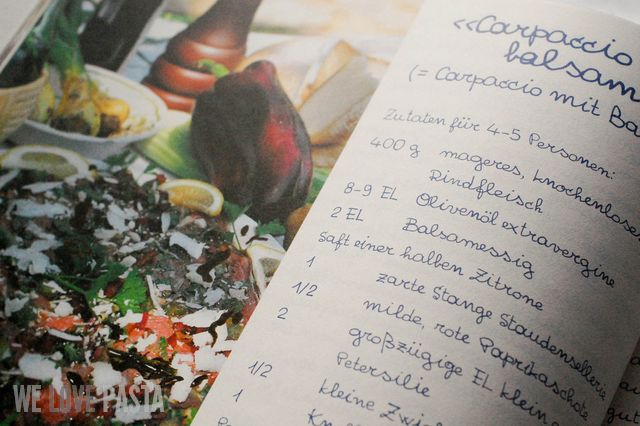 «Carpaccio
balsam
(= Carpaccio mit Ba
Zutaten für 4-5 Personen:
400 g mageres, knochenloses
Rindfleisch
8-9 EL Olivenöl extravergine
2 EL Balsamessig
Saft einer halben Zitrone
1 zarte Stange Staudensellerie
1/2 milde, rote Paprikaschote
2 großzügige EL klein
Petersilie
1/2 kleine Zwie
1 Kn
WE LOVE PASTA